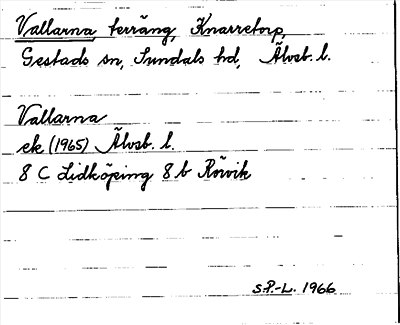 Vallarna, terräng, Knarretorp,
Gestads sn, Sundals hd, Älvsb. l.
Vallarna
ek (1965) Älvsb. l.
8 C Lidköping 8 b Rövik
S.P.-L. 1966